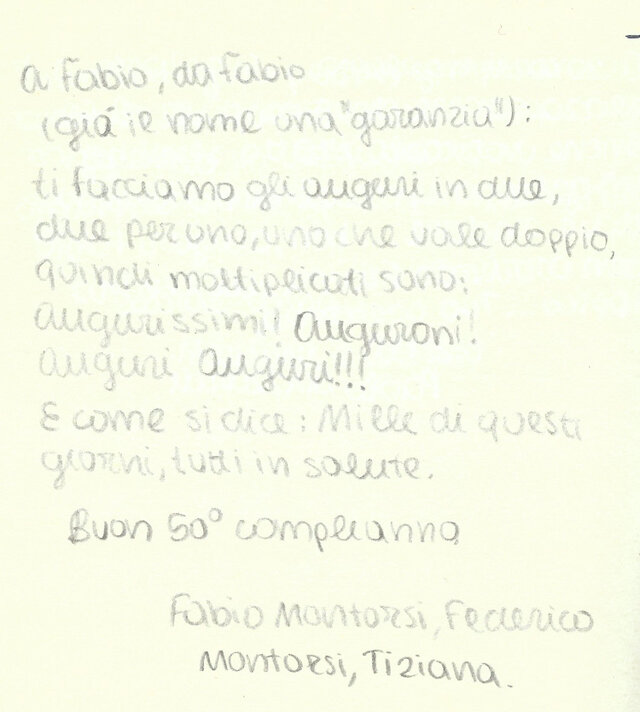 A Fabio, da Fabio
(giá il nome una "garanzia"):
ti facciamo gli auguri in due,
due per uno, uno che vale doppio,
quindi moltiplicati sono:
Augurissimi! Auguroni!
Auguri Auguri!!!
E come si dice: Mille di questi
giorni, tutti in salute.
Buon 50° compleanno
Fabio Montorsi, Federico
Montorsi, Tiziana.